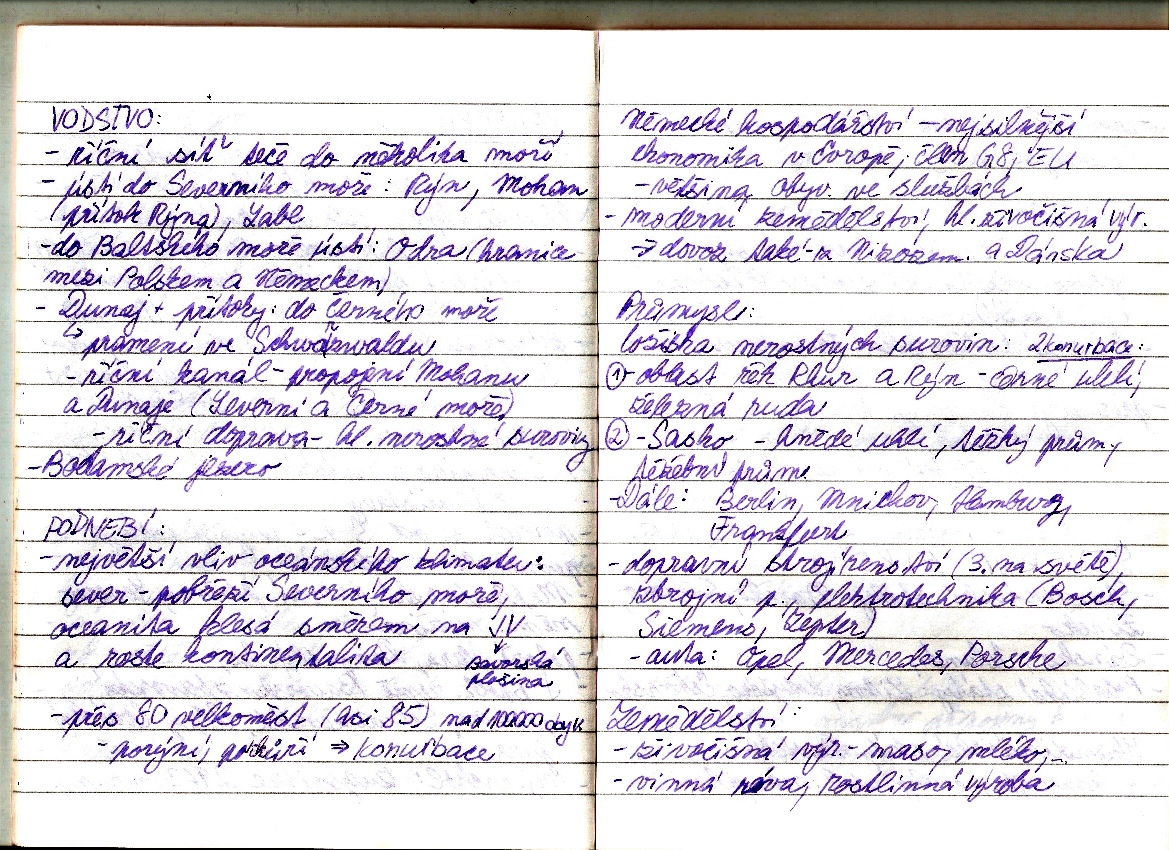 VODSTVO:
- říční síť teče do několika moří
- ústí do Severního moře: Rýn, Mohan
(přítok Rýna), Labe
- do Baltského moře ústí: Odra (hranice
mezi Polskem a Německem)
- Dunaj + přítoky: do černého moře
↳ pramení ve Schwarzwaldu
- říční kanál - propojní Mohanu
a Dunaje (Severní a Černé moře)
- říční doprava - hl. nerostné suroviny
- Bodamské jezero
PODNEBÍ:
- největší vliv oceánského klimatu:
sever - pobřeží Severního moře,
oceanita klesá směrem na JV
a roste kontinentalita
↓ Bavorská
plošina
- přes 80 velkoměst (asi 85) nad 100000 obyv.
- porýní, porůří ⇒ konurbace
Německé hospodářství - nejsilnější
ekonomika v Evropě, člen G8, EU
- většina obyv. ve službách
- moderní zemědělství, hl. živočišná výr.
→ dovoz také z Nizozem. a Dánska
Průmysl:
ložiska nerostných surovin: 2 konurbace:
① - oblast řek Rhur a Rýn - černé uhlí,
železná ruda
② - Sasko - hnědé uhlí, těžký prům,
těžební prům.
- Dále: Berlin, Mnichov, Hamburg,
Frankfurt
- dopravní strojírenství (3. na světě),
zbrojní p., elektrotechnika (Bosch,
Siemens, Zepter)
- auta: Opel, Mercedes, Porsche
Zemědělství:
- živočišná výr. - maso, mléko,..
- vinná réva, rostlinná výroba